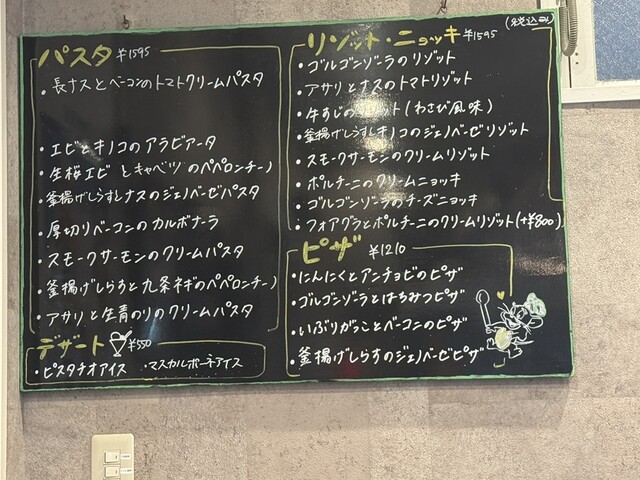 パスタ ¥1595
・長ナスとベーコンのトマトクリームパスタ
・エビとキノコのアラビアータ
・生桜エビとキャベツのペペロンチーノ
・釜揚げしらすとナスのジェノベーゼパスタ
・厚切りベーコンのカルボナーラ
・スモークサーモンのクリームパスタ
・釜揚げしらすと九条ネギのペペロンチーノ
・アサリと生青のりのクリームパスタ
デザート ¥550
・ピスタチオアイス ・マスカルポーネアイス
(税込み)
リゾット・ニョッキ ¥1595
・ゴルゴンゾーラのリゾット
・アサリとナスのトマトリゾット
・牛すじのリゾット(わさび風味)
・釜揚げしらすとキノコのジェノベーゼリゾット
・スモークサーモンのクリームリゾット
・ポルチーニのクリームニョッキ
・ゴルゴンゾーラのチーズニョッキ
・フォアグラとポルチーニのクリームリゾット(+¥800)
ピザ ¥1210
・にんにくとアンチョビのピザ
・ゴルゴンゾーラとはちみつピザ
・いぶりがっことベーコンのピザ
・釜揚げしらすのジェノベーゼピザ